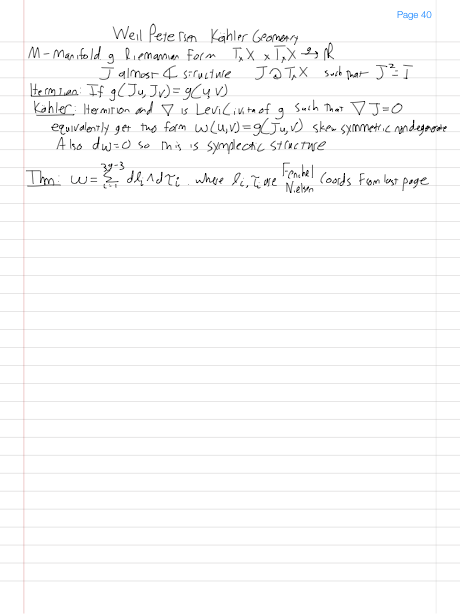 Page 40
Weil Petersen Kahler Geometry
M - manifold g Riemannian form TₓX × TₓX → ℝ
J almost ℂ structure J ↻ TₓX such that J² = I
Hermitian: If g(Ju, Jv) = g(u, v)
Kahler: Hermitian and ∇ is Levi Civita of g such that ∇J = 0
equivalently get two form ω(u,v) = g(Ju, v) skew symmetric nondegenerate
Also dω = 0 so this is symplectic structure
Thm: ω = Σ_{i=1}^{3g-3} dl_i ∧ dτ_i where l_i, τ_i are Fenchel Nielsen Coords from last page